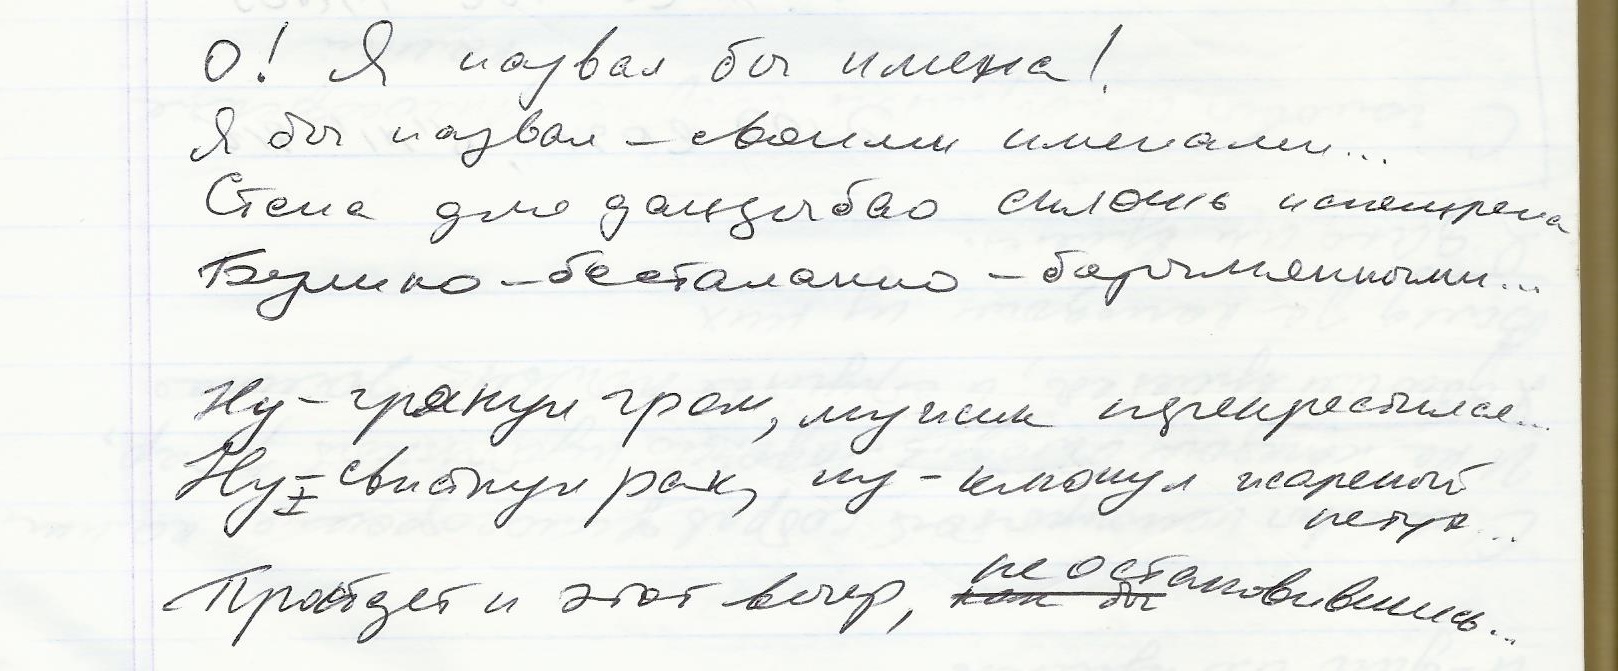 О! Я назвал бы имена!
Я бы назвал – своими именами...
Стена для дацзыбао сплошь испещрена
Безлико-бесталанно-безымянными...
Ну – грянул гром, мужик перекрестился...
Ну – свистнул рак, ну – клюнул жареный
петух...
Пройдет и этот вечер, не остановившись...